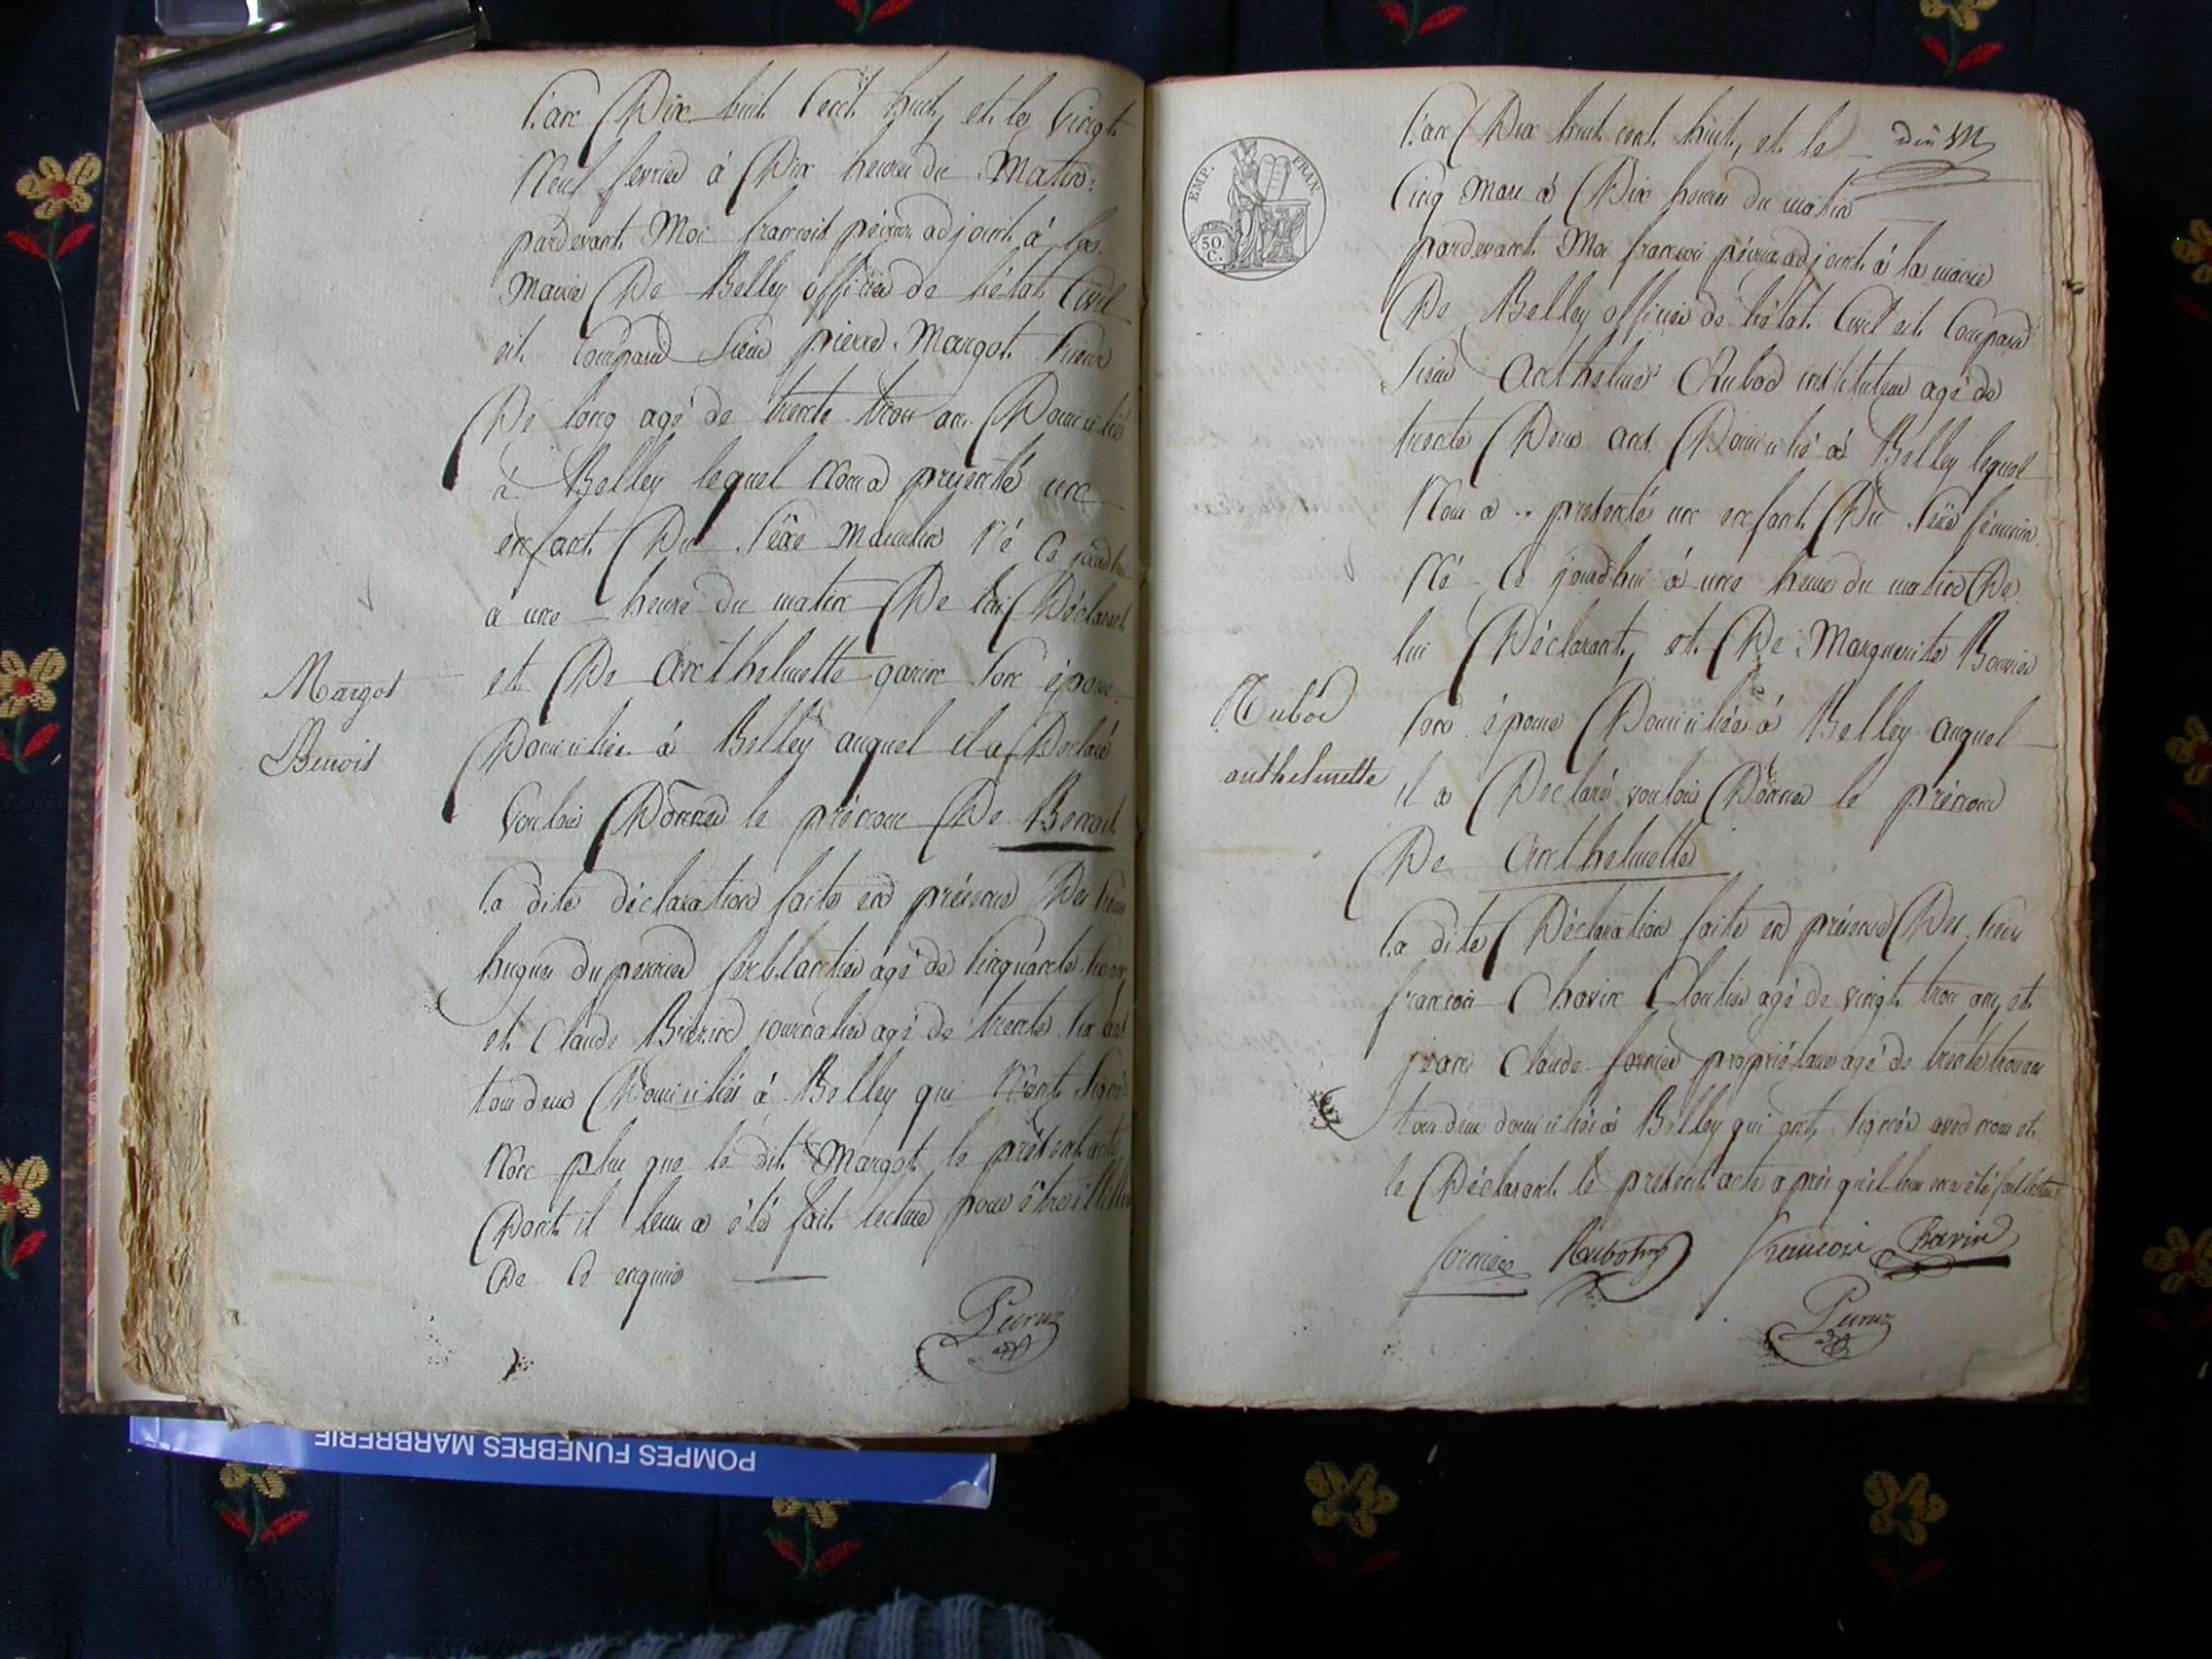 L'an Dix huit Cent huit, et le Vingt
Neuf fevrier à Dix heures du Matin
pardevant Moi françois péruz adjoint à la
Mairie De Belley officier de l'état Civil
est Comparu Sieur pierre Margot Scieur
De long agé de trente trois ans Domicilié
à Belley lequel Nous a présenté un
enfant Du Sexe Masculin Né Ce jourd'hui
a une heure du matin De lui Déclarant
et De Anthelmette garin Son épouse
Margot
Domiciliée à Belley auquel il a Déclaré
Benoit
Vouloir Donner le prénom De Benoit
La dite déclaration faite en présence Des Sieurs
hugues duperrier ferblantier agé de Cinquante
et Claude journalier agé de trente Six ans
tous deux Domiciliés à Belley qui N'ont Signé
Non plus que le dit Margot le présent acte
Dont il leur a été fait lecture pour être
De Ce enquis
Peruz
EMP. FRAN.
50.
C.
L'an Dix huit cent huit, et le
Cinq Mars à Dix heures du matin
pardevant Moi françois péruz adjoint à la mairie
De Belley officier de l'état Civil est Comparu
Sieur Anthelme Rubod instituteur agé de
trente Deux ans Domicilié à Belley lequel
Nous a présenté un enfant Du Sexe féminin
Né Ce jourd'hui à une heure du matin De
lui Déclarant, et De Marguerite
Rubod
Son épouse Domiciliée à Belley auquel
anthelmette
il a Déclaré vouloir Donner le prénom
De Anthelmette
La dite Déclaration faite en présence Des Sieurs
françois Chavin Cloutier agé de vingt trois ans, et
jean Claude fornier propriétaire agé de trente trois ans
tous deux domiciliés à Belley qui ont Signés avec nous et
le Déclarant le présent acte après qu'il leur en a été fait lecture
fornier Rubod françois Chavin
Peruz
POMPES FUNEBRES MARBRERIE